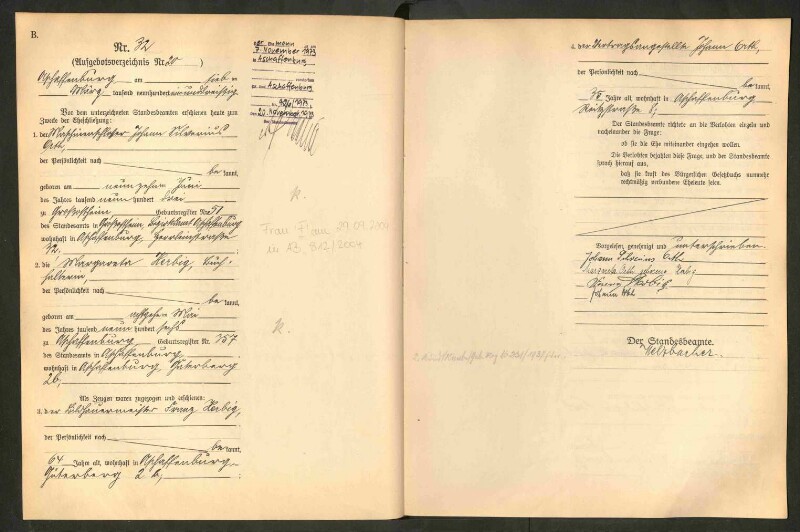 B.
Nr. 32
(Aufgebotsverzeichnis Nr. 20 )
Aschaffenburg am sieb-
März tausend neunhundert
Vor dem unterzeichneten Standesbeamten erschienen heute zum
Zwecke der Eheschließung:
1. der Maschinenschlosser Johann Silverius
Orth,
der Persönlichkeit nach
be kannt,
geboren am neunzehnten Juni
des Jahres tausend neun hundert drei
zu Großostheim Geburtsregister Nr. 51
des Standesamts in Großostheim, Bezirksamt Aschaffenburg
wohnhaft in Aschaffenburg,
32.
2. die Margareta Herbig, Buch-
halterin,
der Persönlichkeit nach
be kannt,
geboren am achtzehnten Mai
des Jahres tausend neun hundert sechs
zu Aschaffenburg Geburtsregister Nr. 357
des Standesamts in Aschaffenburg
wohnhaft in Aschaffenburg, Güterberg
2b,
Als Zeugen waren zugezogen und erschienen:
3. der Bildhauermeister Franz Herbig,
der Persönlichkeit nach
be kannt,
64 Jahre alt, wohnhaft in Aschaffenburg,
Güterberg 2 b,
7. November 1979
in Aschaffenburg
Aschaffenburg
1979
Frau F am 29.09.2004
in AB, 812/2004
4. der Vertragsangestellte Johann Orth,
der Persönlichkeit nach
be kannt,
Jahre alt, wohnhaft in Aschaffenburg
Der Standesbeamte richtete an die Verlobten einzeln und
nacheinander die Frage:
ob sie die Ehe miteinander eingehen wollen.
Die Verlobten bejahten diese Frage, und der Standesbeamte
sprach hierauf aus,
daß sie kraft des Bürgerlichen Gesetzbuchs nunmehr
rechtmäßig verbundene Eheleute seien.
Vorgelesen, genehmigt und unterschrieben.
Johann Silverius Orth
Margareta Orth geborene Herbig
Franz Herbig
Johann Orth
Der Standesbeamte.
Welzbacher.